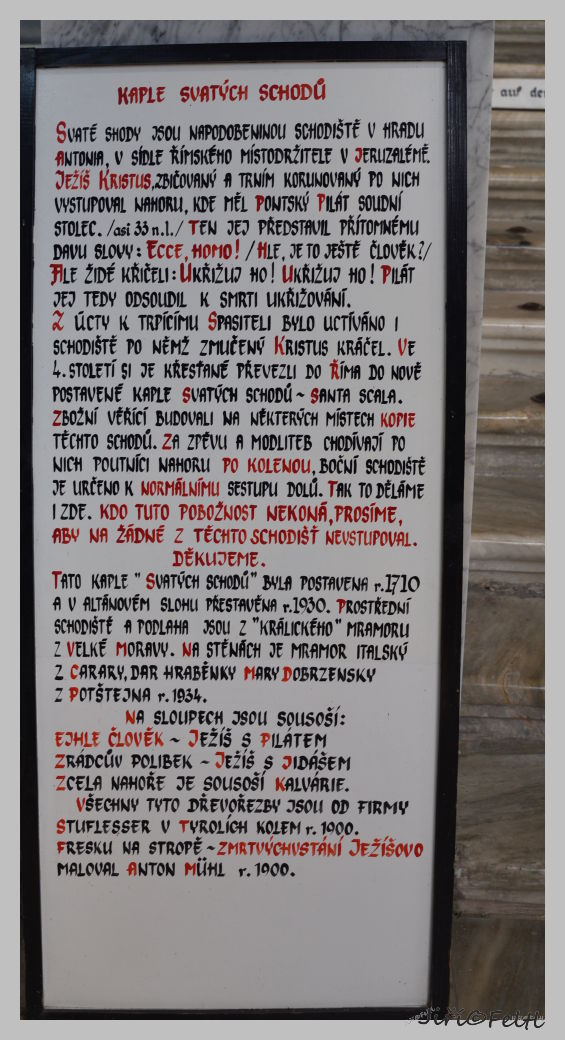 KAPLE SVATÝCH SCHODŮ
auf der
SVATÉ SHODY JSOU NAPODOBENINOU SCHODIŠTĚ V HRADU
ANTONIA, V SÍDLE ŘÍMSKÉHO MÍSTODRŽITELE V JERUZALÉMĚ.
JEŽÍŠ KRISTUS, ZBIČOVANÝ A TRNÍM KORUNOVANÝ PO NICH
VYSTUPOVAL NAHORU, KDE MĚL PONTSKÝ PILÁT SOUDNÍ
STOLEC. /asi 33 n.l./ TEN JEJ PŘEDSTAVIL PŘÍTOMNÉMU
DAVU SLOVY: ECCE, HOMO! /HLE, JE TO JEŠTĚ ČLOVĚK?/
ALE ŽIDÉ KŘIČELI: UKŘIŽUJ HO! UKŘIŽUJ HO! PILÁT
JEJ TEDY ODSOUDIL K SMRTI UKŘIŽOVÁNÍ.
Z ÚCTY K TRPÍCÍMU SPASITELI BYLO UCTÍVÁNO I
SCHODIŠTĚ PO NĚMŽ ZMUČENÝ KRISTUS KRÁČEL. VE
4. STOLETÍ SI JE KŘESŤANÉ PŘEVEZLI DO ŘÍMA DO NOVĚ
POSTAVENÉ KAPLE SVATÝCH SCHODŮ ~ SANTA SCALA.
ZBOŽNÍ VĚŘÍCÍ BUDOVALI NA NĚKTERÝCH MÍSTECH KOPIE
TĚCHTO SCHODŮ. ZA ZPĚVU A MODLITEB CHODÍVAJÍ PO
NICH POUTNÍCI NAHORU PO KOLENOU, BOČNÍ SCHODIŠTĚ
JE URČENO K NORMÁLNÍMU SESTUPU DOLŮ. TAK TO DĚLÁME
I ZDE. KDO TUTO POBOŽNOST NEKONÁ, PROSÍME,
ABY NA ŽÁDNÉ Z TĚCHTO SCHODIŠŤ NEVSTUPOVAL.
DĚKUJEME.
TATO KAPLE "SVATÝCH SCHODŮ" BYLA POSTAVENA r.1710
A V ALTÁNOVÉM SLOHU PŘESTAVĚNA r.1930. PROSTŘEDNÍ
SCHODIŠTĚ A PODLAHA JSOU Z "KRÁLICKÉHO" MRAMORU
Z VELKÉ MORAVY. NA STĚNÁCH JE MRAMOR ITALSKÝ
Z CARARY, DAR HRABĚNKY MARY DOBRZENSKY
Z POTŠTEJNA r.1934.
NA SLOUPECH JSOU SOUSOŠÍ:
EJHLE ČLOVĚK ~ JEŽÍŠ S PILÁTEM
ZRÁDCŮV POLIBEK ~ JEŽÍŠ S JIDÁŠEM
ZCELA NAHOŘE JE SOUSOŠÍ KALVÁRIE.
VŠECHNY TYTO DŘEVOŘEZBY JSOU OD FIRMY
STUFLESSER V TYROLÍCH KOLEM r. 1900.
FRESKU NA STROPĚ ~ ZMRTVÝCHVSTÁNÍ JEŽÍŠOVO
MALOVAL ANTON MÜHL r. 1900.